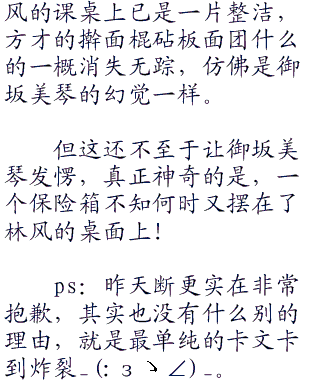 风的课桌上已是一片整洁，
方才的擀面棍砧板面团什么
的一概消失无踪，仿佛是御
坂美琴的幻觉一样。
但这还不至于让御坂美
琴发愣，真正神奇的是，一
个保险箱不知何时又摆在了
林风的桌面上！
ps：昨天断更实在非常
抱歉，其实也没有什么别的
理由，就是最单纯的卡文卡
到炸裂_(:з丶∠)_。